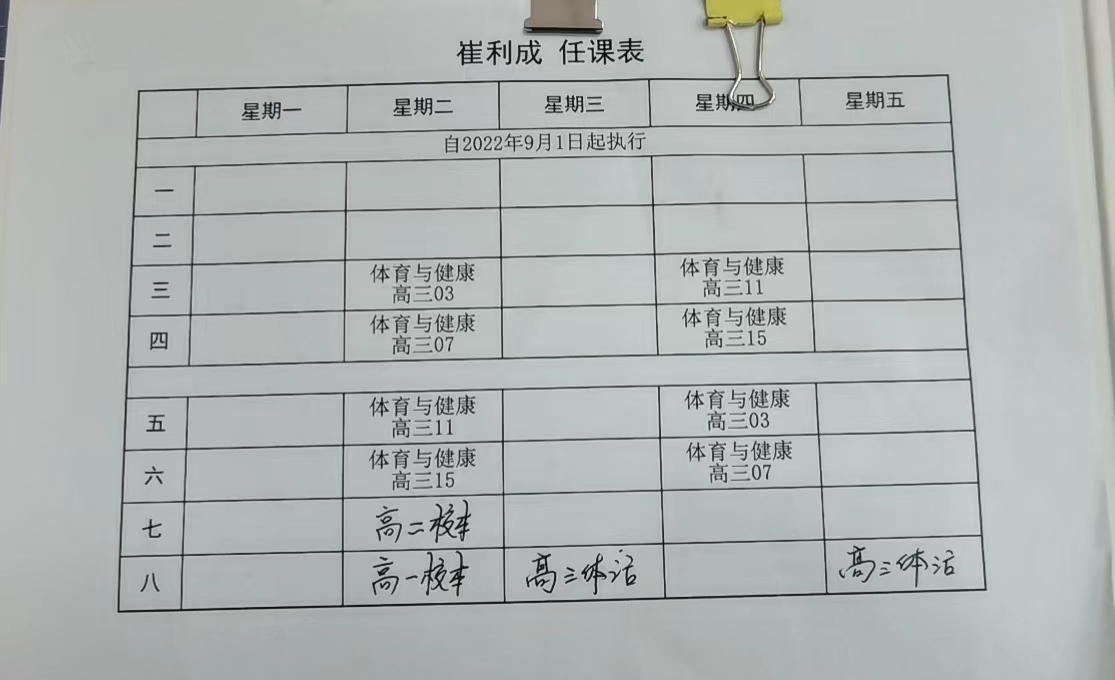 崔利成 任课表
星期一 星期二 星期三 星期四 星期五
自2022年9月1日起执行
一
二
三 体育与健康 体育与健康
高三03 高三11
四 体育与健康 体育与健康
高三07 高三15
五 体育与健康 体育与健康
高三11 高三03
六 体育与健康 体育与健康
高三15 高三07
七 高二校本
八 高一校本 高三体活 高三体活